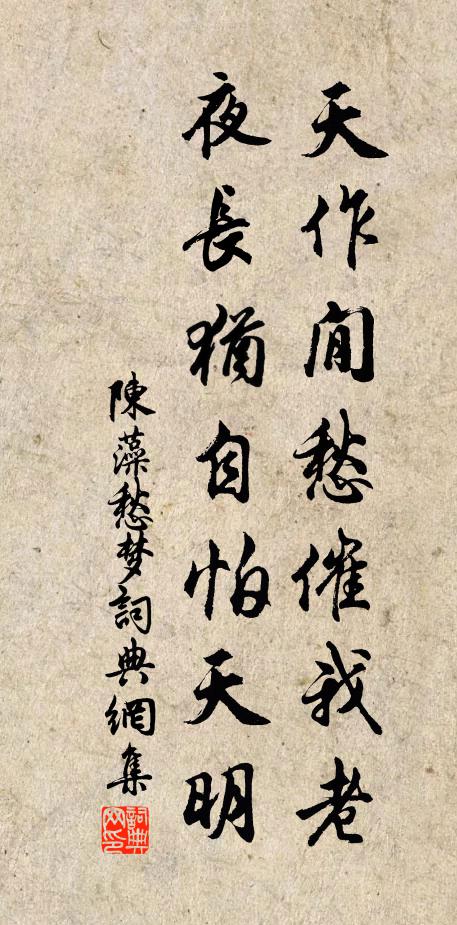 天作閒愁催我老
夜長猶自怕天明
陳藻愁梦詞典網集
詞典網印